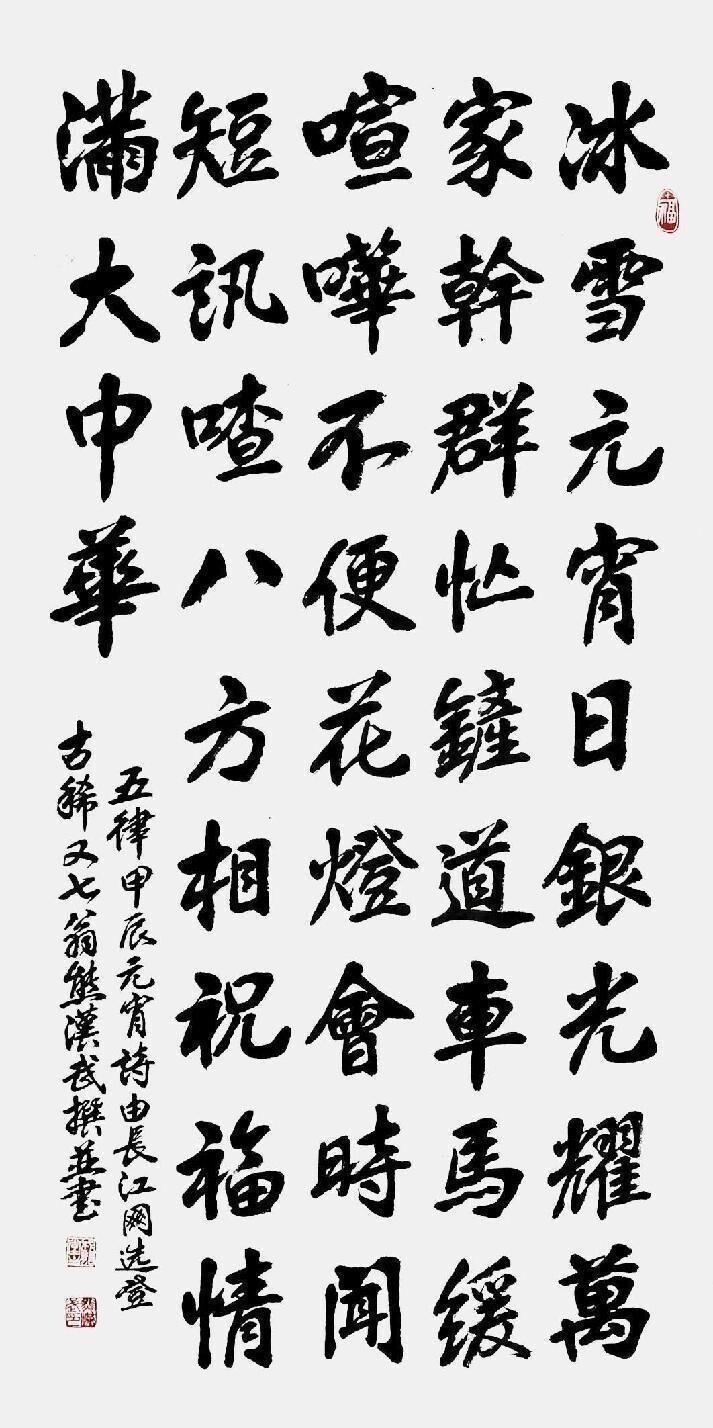 冰雪元宵日銀光耀萬
家幹群忙鏟道車馬緩
喧嘩不便花燈會時聞
短訊喳八方相祝福情
滿大中華
五律甲辰元宵詩由長江網选登
古稀又七翁熊漢武撰並書